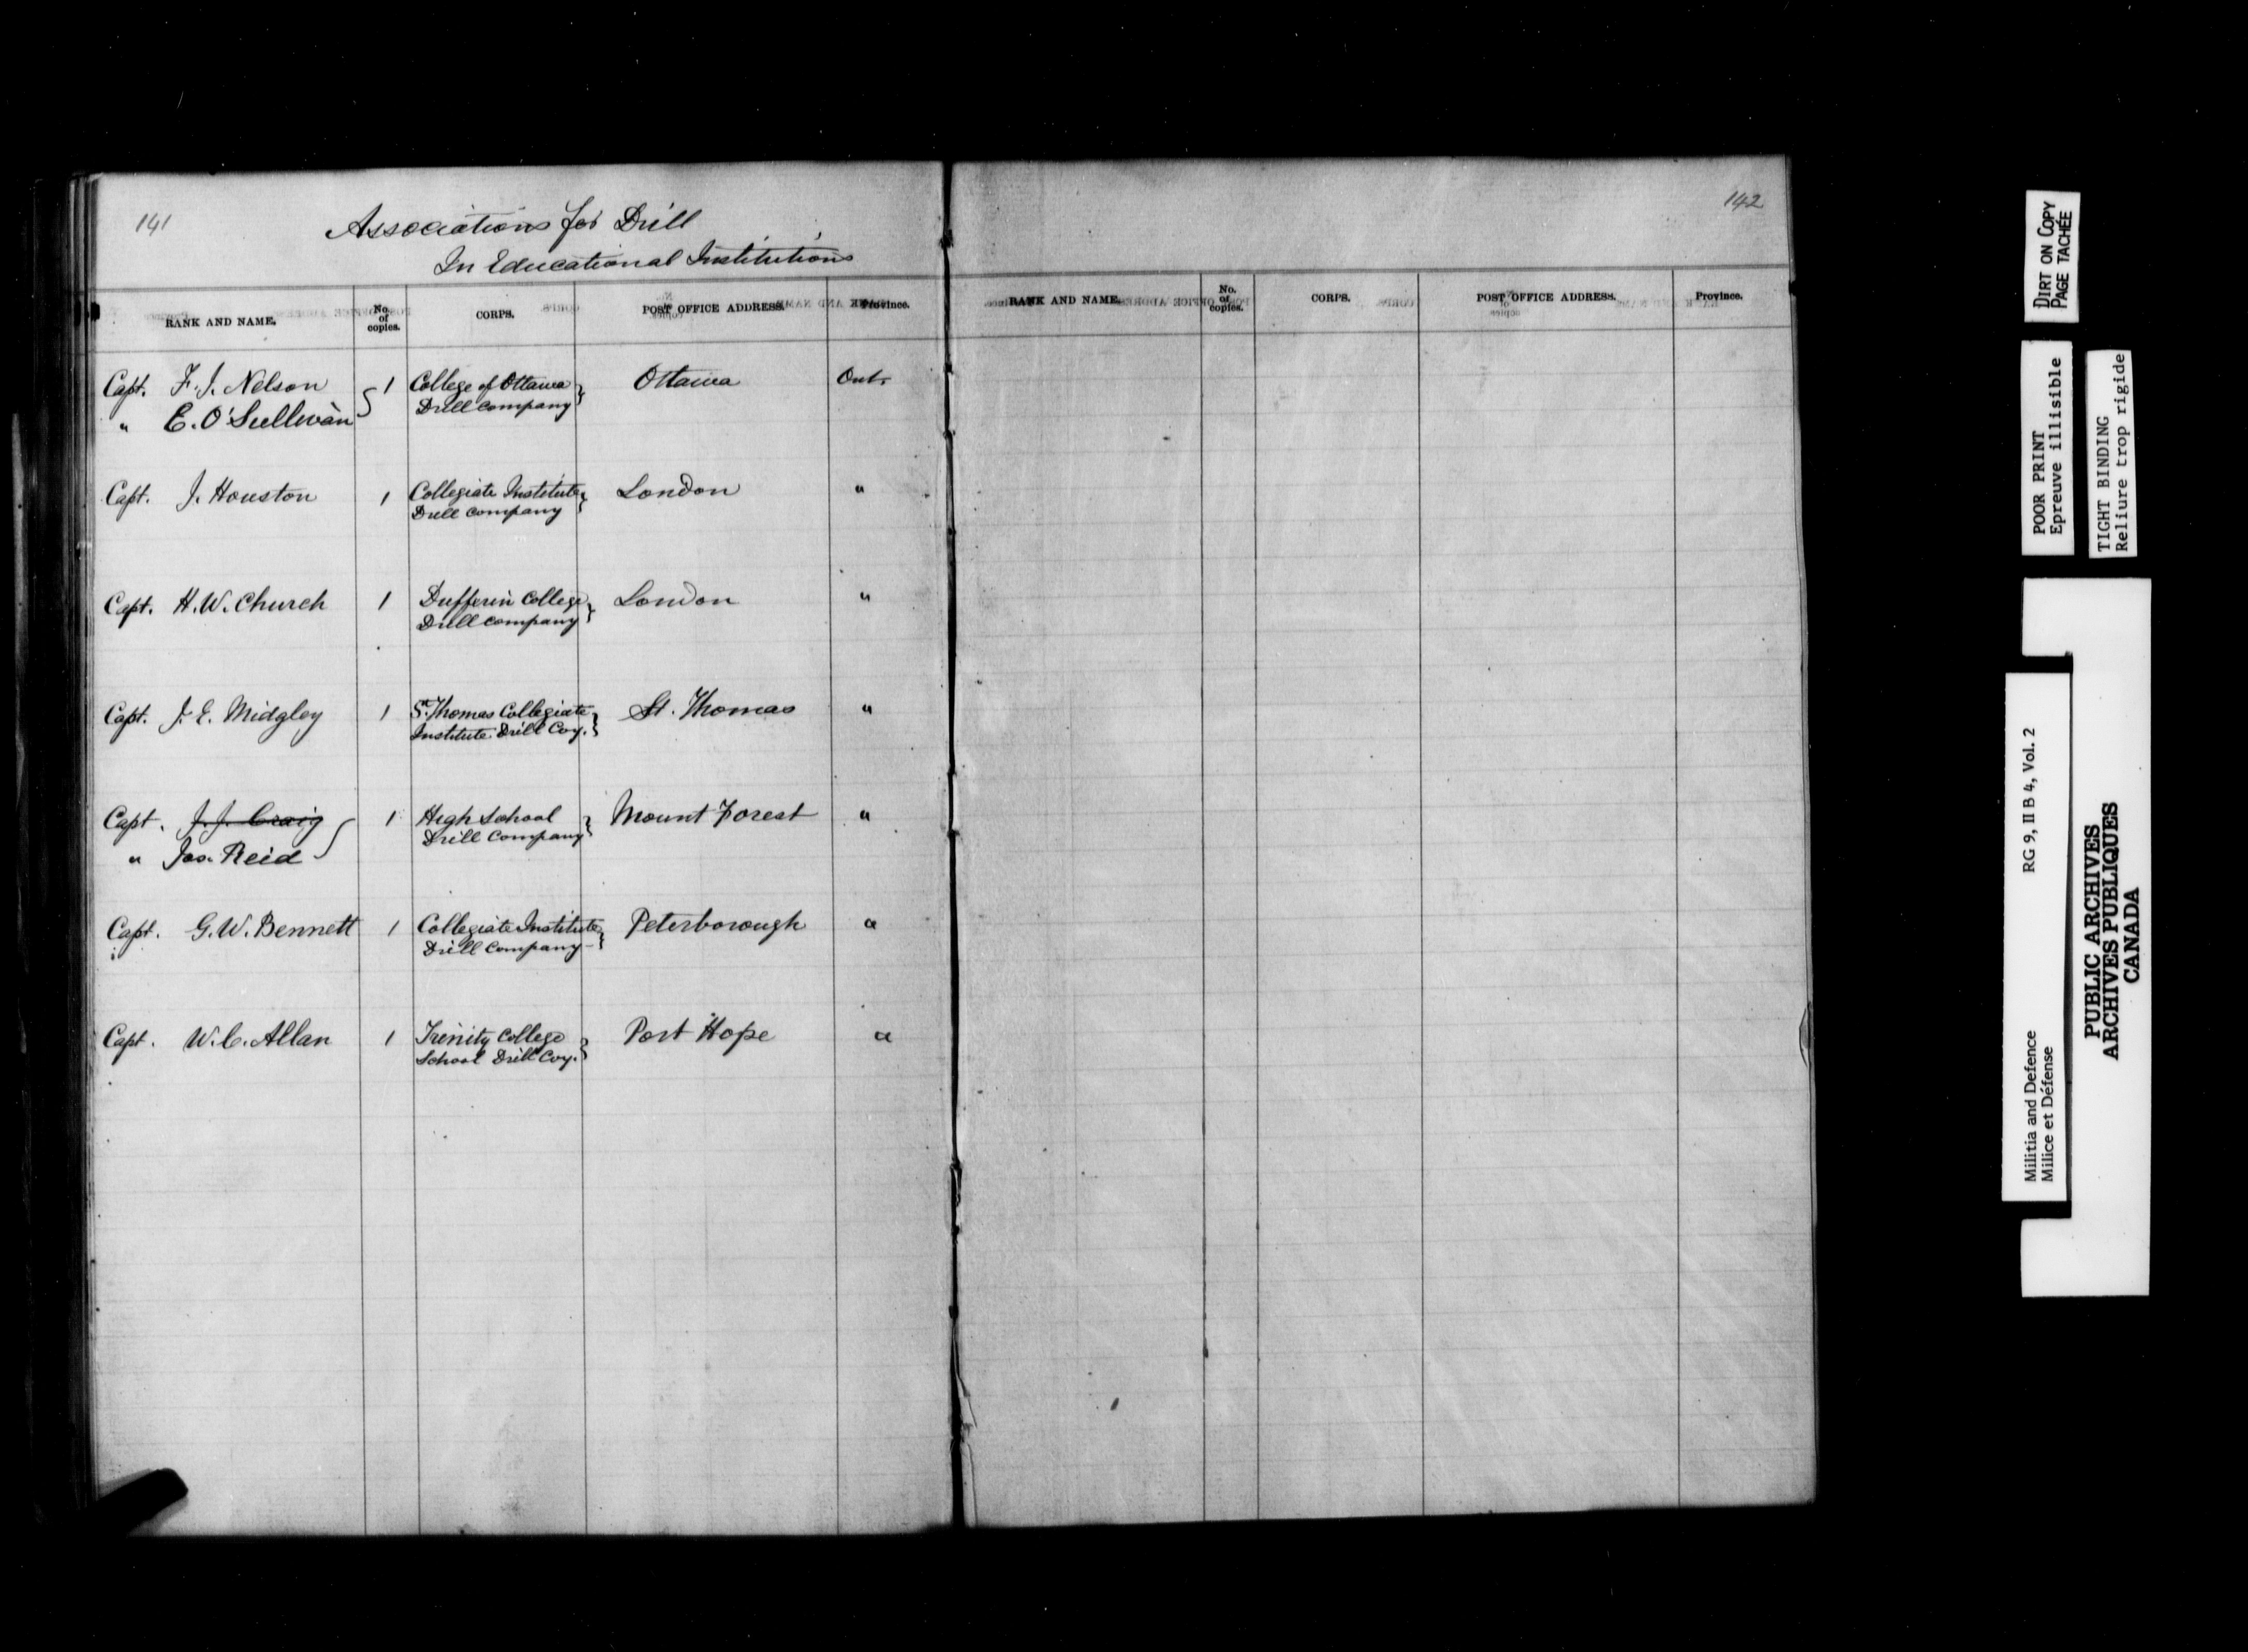 141
Associations for Drill
In Educational Institutions
RANK AND NAME. No. of copies. CORPS. POST OFFICE ADDRESS. Province.
Capt. F. J. Nelson } 1 College of Ottawa } Ottawa Ont.
" E. O'Sullivan Drill Company
Capt. J. Houston 1 Collegiate Institute } London "
Drill Company
Capt. H. W. Church 1 Dufferin College } London "
Drill Company
Capt. J. E. Midgley 1 St. Thomas Collegiate } St. Thomas "
Institute Drill Coy.
Capt. J. J. Craig } 1 High School } Mount Forest "
" Jas. Reid Drill Company
Capt. G. W. Bennett 1 Collegiate Institute } Peterborough "
Drill Company
Capt. W. C. Allan 1 Trinity College } Port Hope "
School Drill Coy.
142
RANK AND NAME. No. of copies. CORPS. POST OFFICE ADDRESS. Province.
DIRT ON COPY
PAGE TACHÉE
POOR PRINT
Epreuve illisible
TIGHT BINDING
Reliure trop rigide
Militia and Defence RG 9, II B 4, Vol. 2
Milice et Défense
PUBLIC ARCHIVES
ARCHIVES PUBLIQUES
CANADA